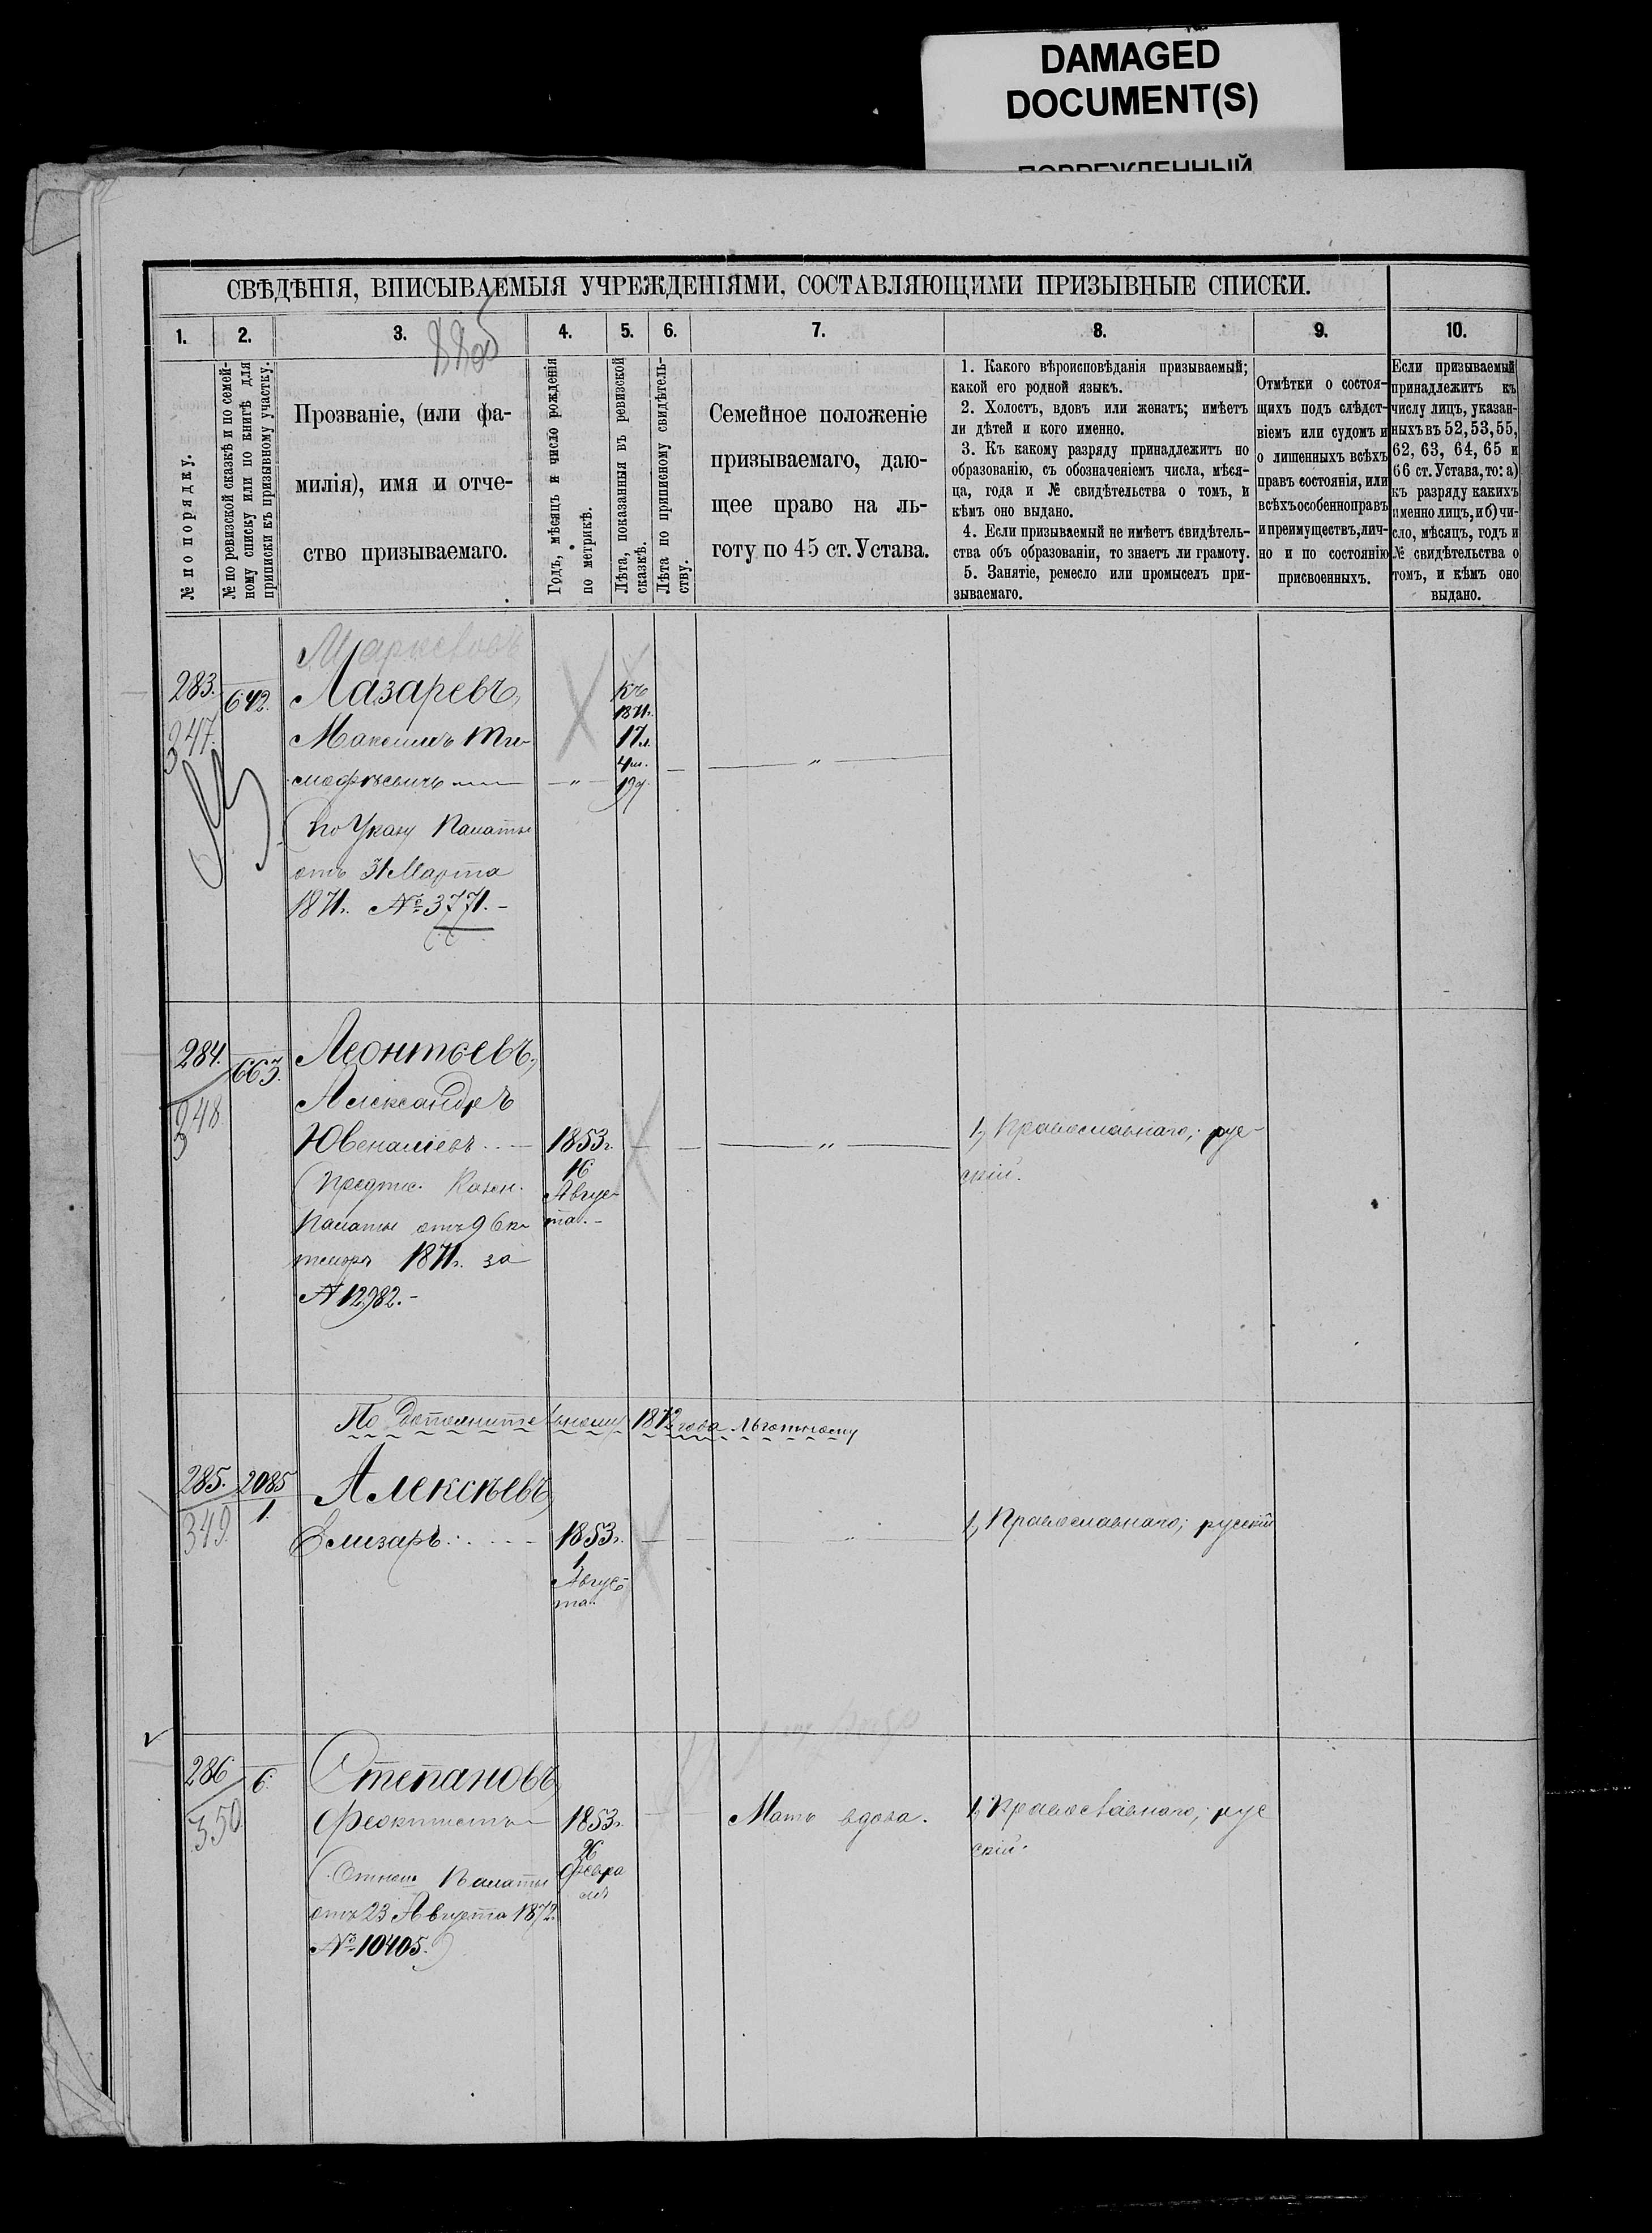 DAMAGED
DOCUMENT(S)
ПОВРЕЖДЕННЫЙ
СВѢДѢНІЯ, ВПИСЫВАЕМЫЯ УЧРЕЖДЕНІЯМИ, СОСТАВЛЯЮЩИМИ ПРИЗЫВНЫЕ СПИСКИ.
1.
2.
3.
4.
5.
6.
7.
8.
9.
10.
№ по порядку.
№ по ревизской сказкѣ и по семей-
ному списку или по книгѣ для
приписки къ призывному участку.
Прозваніе, (или фа-
милія), имя и отче-
ство призываемаго.
Годъ, мѣсяцъ и число рожденія
по метрикѣ.
Лѣта, показанныя въ ревизской
сказкѣ.
Лѣта по приписному свидѣтель-
ству.
Семейное положеніе
призываемаго, даю-
щее право на ль-
готу по 45 ст. Устава.
1. Какого вѣроисповѣданія призываемый;
какой его родной языкъ.
2. Холостъ, вдовъ или женатъ; имѣетъ
ли дѣтей и кого именно.
3. Къ какому разряду принадлежитъ по
образованію, съ обозначеніемъ числа, мѣся-
ца, года и № свидѣтельства о томъ, и
кѣмъ оно выдано.
4. Если призываемый не имѣетъ свидѣтель-
ства объ образованіи, то знаетъ ли грамоту.
5. Занятіе, ремесло или промыселъ при-
зываемаго.
Отмѣтки о состоя-
щихъ подъ слѣдст-
віемъ или судомъ и
о лишенныхъ всѣхъ
правъ состоянія, или
всѣхъ особенно правъ
и преимуществъ, лич-
но и по состоянію
присвоенныхъ.
Если призываемый
принадлежитъ къ
числу лицъ, указан-
ныхъ въ 52, 53, 55,
62, 63, 64, 65 и
66 ст. Устава, то: а)
къ разряду какихъ
именно лицъ, и б) чи-
сло, мѣсяцъ, годъ и
№ свидѣтельства о
томъ, и кѣмъ оно
выдано.
283.
347.
642.
Лазаревъ,
Максимъ Ти-
мофѣевичъ
(по Указу Палаты
отъ 31 Марта
1871г. № 3771.-
къ
1871г.
17л.
4м.
19д.
284.
348
663.
Леонтьевъ,
Александръ
Ювеналіевъ
(Предпис. Казен.
Палаты отъ 9 Ок-
тября 1871г. за
№ 12982.-
1853г.
16
Авгус-
та.-
1, Православнаго; рус-
скій.
По Дополнительному 1872 года льготному
285.
349.
2085
1.
Алексѣевъ,
Елизаръ
1853г.
1
Авгус-
та.
1, Православнаго; русскій
286
350
6.
Степановъ,
Феоктистъ
(Отнош. Палаты
отъ 23 Августа 1872.
№ 10405.)
1853г.
26
Мать вдова.
1, Православнаго; рус
скій.